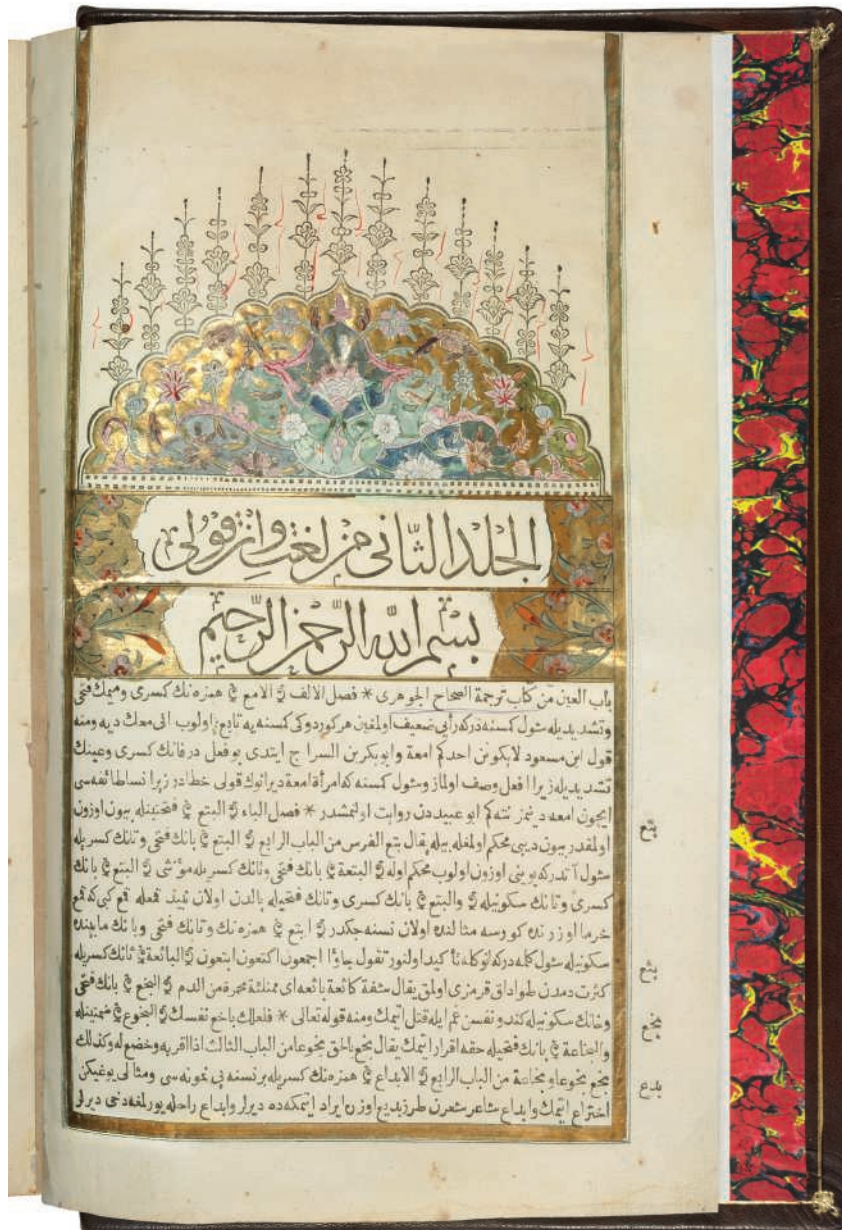 الجلد الثانى من لغت وانقولى
بسم الله الرحمن الرحيم
باب العين من كتاب ترجمة الصحاح الجوهرى * فصل الالف الامع همزه نك كسرى وميمك فتحى
وتشديديله شول كمسنه دركه رأيى ضعيف اولمغين هر كوردوكى كمسنه يه تابع اولوب انى معك ديه ومنه
قول ابن مسعود لايكونن احدكم امعة وابوبكر بن السراج ايتدى بو فعل در فانك كسرى وعينك
تشديديله زيرا افعل وصف اولماز وشول كمسنه كه امرأة امعة دير انوك قولى خطادر زيرا نسا طائفه سى
ايچون امعه دينمز نته كم ابو عبيددن روايت اولنمشدر * فصل الباء البتع فتحتينله بيون اوزون
اولمقدر بيون ديبى محكم اولمغله بيله يقال بتع الفرس من الباب الرابع البتع بانك فتحى وتانك كسريله
شول آتدر كه بوينى اوزون اولوب محكم اوله البتعة بانك فتحى وتانك كسريله مؤنثى البتع بانك
كسرى وتانك سكونيله والبتع بانك كسرى وتانك فتحيله بالدن اولان نبيذ قمعله قمع كبى كه قمع
خرما اوزرنده كورسه مثالنده اولان نسنه جكدر ابتع همزه نك وتانك فتحى وبانك مابينده
سكونيله شول كلمه دركه انوكله تأكيد اولنور تقول جاؤا اجمعون اكتعون ابتعون البائعة ثانك كسريله
كثرت دمدن طوداق قرمزى اولمق يقال شفة كائعة بائعة اى ممتلئة محمرة من الدم البخع بانك فتحى
وخانك سكونيله كندو نفسن غم ايله قتل اتيمك ومنه قوله تعالى * فلعلك باخع نفسك البخوع ضمتينله
والبخاعة بانك فتحيله حقه اقرار اتيمك يقال بخع بالحق بخوعا من الباب الثالث اذا اقر به وخضع له وكذلك
بخع بخوعا وبخاعة من الباب الرابع الابداع همزه نك كسريله برنسنه يى نمونه سى ومثالى يوغيكن
اختراع اتيمك وابداع شاعر شعرن طرز بديع اوزره ايراد اتيمكه ده ديرلر وابداع راحله يورلمغه دخى ديرلر
بتع
بثع
بخع
بدع